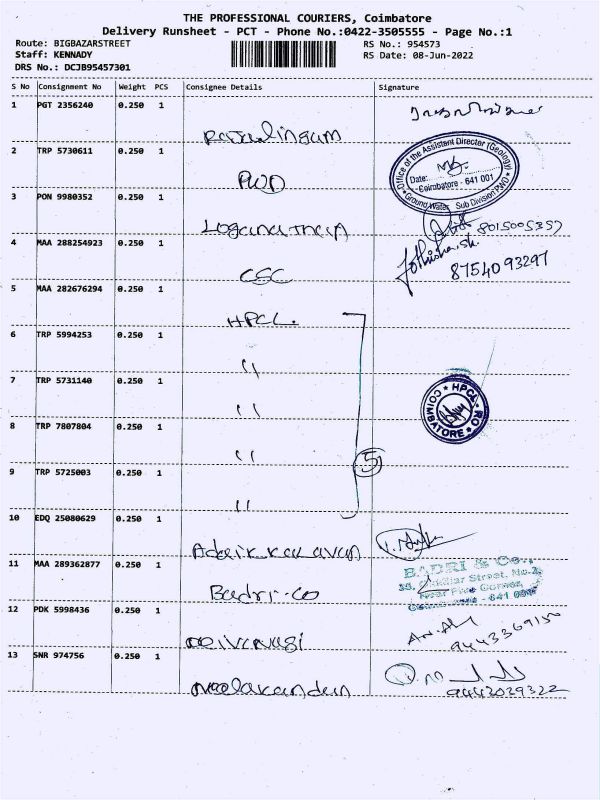 THE PROFESSIONAL COURIERS, Coimbatore
Delivery Runsheet - PCT - Phone No.:0422-3505555 - Page No.:1
Route: BIGBAZARSTREET RS No.: 954573
Staff: KENNADY RS Date: 08-Jun-2022
DRS No.: DCJB95457301
S No Consignment No Weight PCS Consignee Details Signature
1 PGT 2356240 0.250 1
2 TRP 5730611 0.250 1 PWD
Office of the Assistant Director (Geology)
Date:
Coimbatore - 641 001
Ground Water Sub Division PWD
3 PON 9980352 0.250 1 Loganathan 8015005357
4 MAA 288254923 0.250 1 CSC 8754093297
5 MAA 282676294 0.250 1 HPCL.
6 TRP 5994253 0.250 1 "
7 TRP 5731140 0.250 1 "
HPCL RO
COIMBATORE
8 TRP 7807804 0.250 1 "
5
9 TRP 5725003 0.250 1 "
10 EDQ 25080629 0.250 1
11 MAA 289362877 0.250 1 Badri-Co
BADRI & Co.,
Street, No.2,
- 641 001
12 PDK 5998436 0.250 1 9443369150
13 SNR 974756 0.250 1 Neelakandan 9442029322